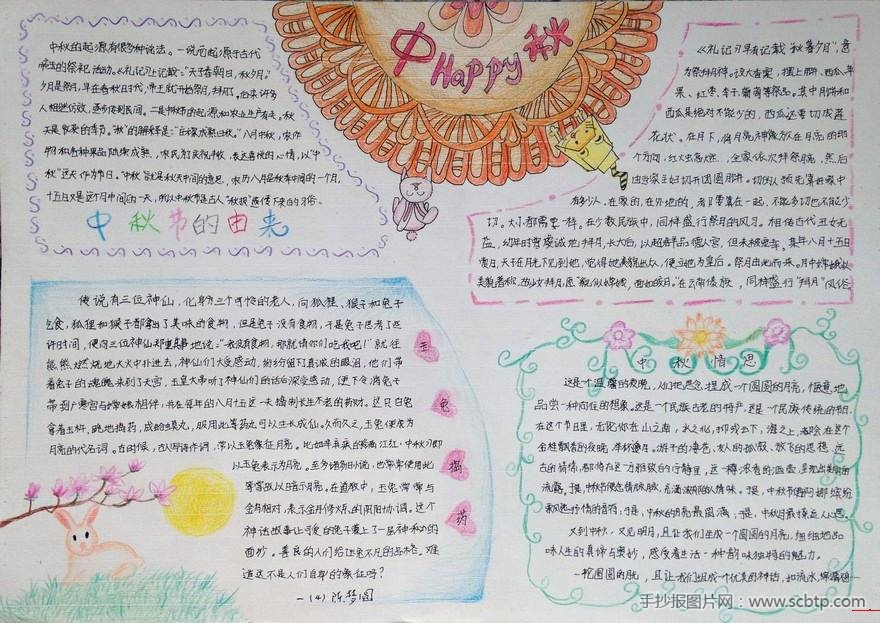 中 Happy 秋
中秋的起源有很多种说法。一说它起源于古代
帝王的祭祀活动。《礼记》上记载:"天子春朝日,秋夕月。"
夕月是祭月,早在春秋时代,帝王就开始祭月、拜月了。后来许多
人相继仿效,逐步传到民间。二是中秋的起源和农业生产有关。秋
天是收获的季节。"秋"的解释是:"庄稼成熟曰秋。"八月中秋,农作
物和各种果品陆续成熟,农民为了庆祝丰收,表达喜悦的心情,以"中
秋"这天作为节日。"中秋"就是秋天中间的意思,农历八月是秋季中间的一个月,
十五日又是这个月中间的一天,所以中秋节是古人"秋报"遗传下来的习俗。
中秋节的由来
《礼记》早有记载"秋暮夕月",意
为祭拜月神。设大香案,摆上月饼、西瓜、苹
果、红枣、李子、葡萄等祭品。其中月饼和
西瓜是绝对不能少的,西瓜还要切成莲
花状。在月下,将月亮神像放在月亮的那
个方向,红烛高燃,全家依次拜祭月亮,然后
由当家主妇切开团圆月饼。切的人预先算好全家中
有多少人,在家的,在外地的,都要算在一起,不能多切也不能少
切。大小都需要一样。在少数民族中,同样盛行祭月的风习。相传古代丑女无
盐,幼年时曾虔诚地拜月,长大后,以超群品德入宫,但未被宠幸。某年八月十五日
赏月,天子在月光下见到她,觉得她美貌出众,便立她为皇后。祭月由此而来。月中嫦娥以
美貌著称,故少女拜月,愿"貌似嫦娥,面如皓月"。在云南傣族,同样盛行"拜月"风俗
传说有三位神仙,化身为三个可怜的老人,向狐狸、猴子和兔子
乞食,狐狸和猴子都拿出了美味的食物,但是兔子没有食物,于是兔子思考了些
许时间,便向三位神仙郑重其事地说:"我没有食物,那就请你们吃我吧!"就往
熊熊燃烧地大火中扑进去,神仙们大受感动,纷纷留下真诚的眼泪,他们带
着兔子的魂魄来到了天宫,玉皇大帝听了神仙们的话后深受感动,便下令将兔子
带到广寒宫与嫦娥相伴,并在每年的八月十五这一天捣制长生不老的药材。这只白兔
拿着玉杵,跪地捣药,成蛤蟆丸,服用此等药丸可以长生成仙。久而久之,玉兔便成为
月亮的代名词。古时候,古人写诗作词,常以玉兔象征月亮。比如辛弃疾的《满江红·中秋》即
以玉兔表示为月亮。至多诸诗旧小说,也常常使用此
等写法以暗示月亮。在道教中,玉兔常常与
金乌相对,表示金丹修炼的阴阳协调。这个
神话故事让可爱的兔子蒙上了一层神秘的
面纱。善良的人们给玉兔不凡的品格,难
道这不是人们自身的象征吗?
玉
兔
捣
药
中秋情思
这是个温馨的夜晚,人们把思念捏成一个圆圆的月亮,惬意地
品尝一种向往的想象。这是一个民族古老的特产,这是一个民族传统的节日。
在这个节日里,无论你在山之南,水之北,抑或天下,海之上,都会在这个
金桂飘香的夜晚,举杯邀月。游子的凄苍,友人的孤寂,放飞的思想,远
流露。于是,中秋节便思情脉脉,充满浓郁的人情味。
又到中秋,又见明月,且让我们坐成一个圆圆的月亮,细细地品
味人生的真谛与奥妙,感受着生活一种韵味独特的魅力。
手抄报图片网:www.scbtp.com